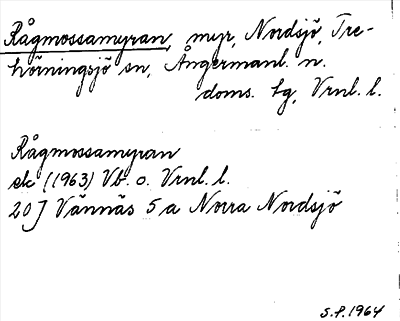 Rågmossamyran, myr, Nordsjö, Tre-
hörningsjö sn, Ångermanl. n.
doms. tg, Vrnl. l.
Rågmossamyran
ek (1963) Vb. o. Vrnl. l.
20J Vännäs 5a Norra Nordsjö
S.P. 1964